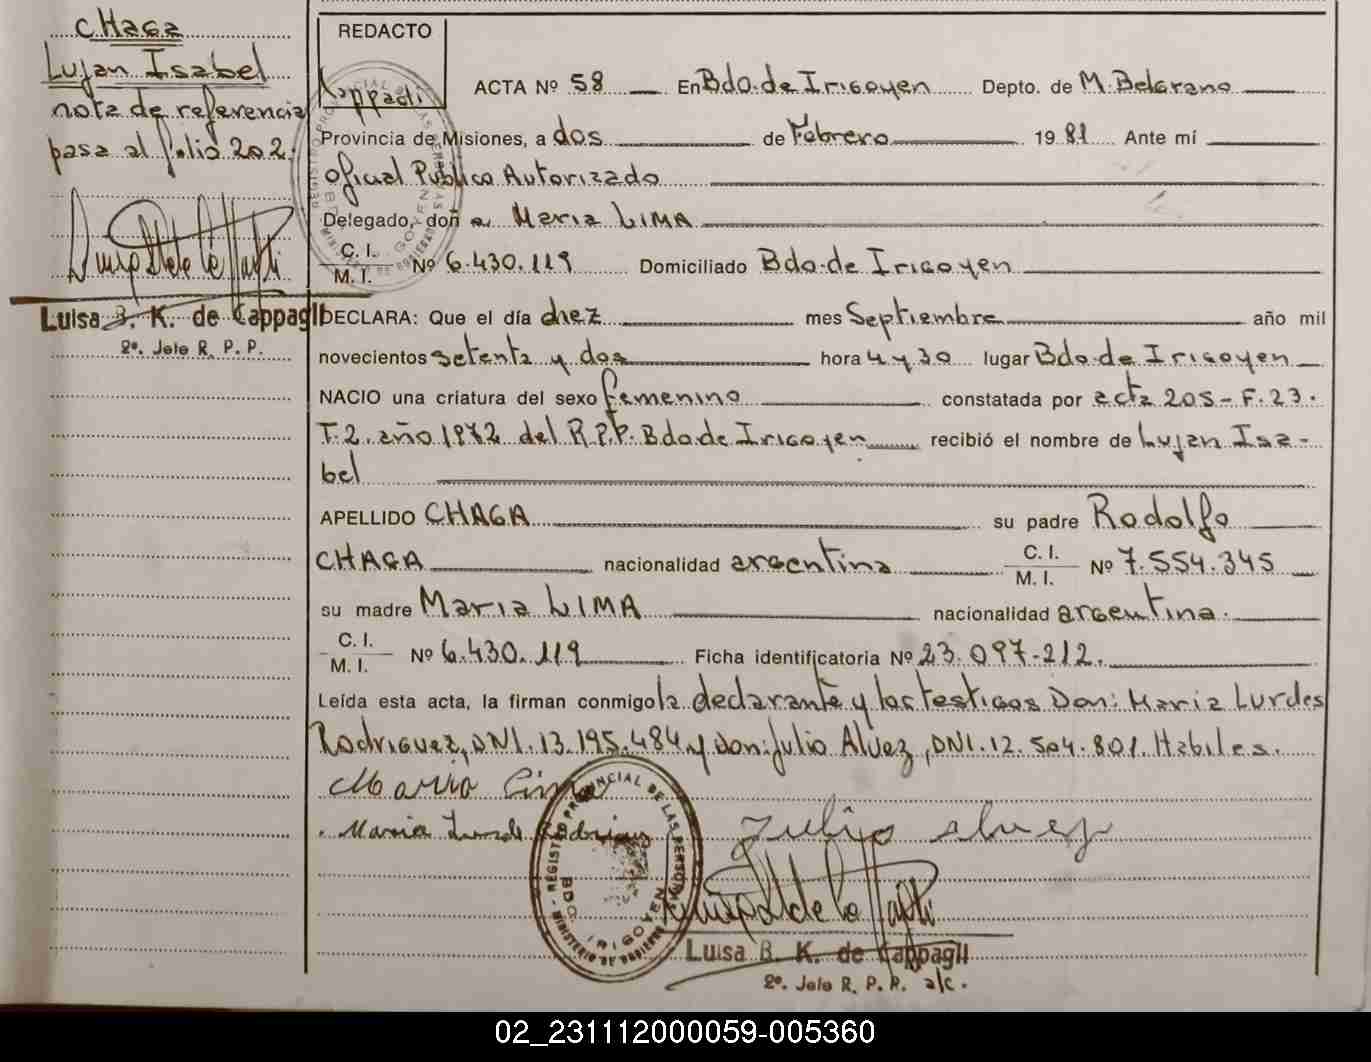 CHAGA
Lujan Isabel
nota de referencia
pasa al folio 202.
Luisa B. K. de Cappagli
2º. Jefe R. P. P.
REDACTO
Cappagli
ACTA Nº 58 En Bdo. de Irigoyen Depto. de M. Belgrano
Provincia de Misiones, a dos de Febrero 1981 Ante mí
Oficial Público Autorizado
Delegado, doña Maria LIMA
C. I.
M. I. Nº 6.430.119 Domiciliado Bdo. de Irigoyen
DECLARA: Que el día diez mes Septiembre año mil
novecientos setenta y dos hora 4 y 30 lugar Bdo. de Irigoyen
NACIO una criatura del sexo femenino constatada por acta 205 - F. 23.
T. 2. año 1972 del R.P.P. Bdo. de Irigoyen recibió el nombre de Lujan Isa-
bel
APELLIDO CHAGA su padre Rodolfo
CHAGA nacionalidad argentina C. I. M. I. Nº 7.554.345
su madre Maria LIMA nacionalidad argentina.
C. I.
M. I. Nº 6.430.119 Ficha identificatoria Nº 23.097-212.
Leída esta acta, la firman conmigo la declarante y los testigos Don: Maria Lurdes
Rodriguez, DNI. 13.195.484 y don: Julio Alvez, DNI. 12.504.801. Habiles.
Maria Lima
Maria Rodriguez Julio Alvez
REGISTRO PROVINCIAL DE LAS PERSONAS
MINISTERIO DE GOBIERNO
BDO. IRIGOYEN
Luisa B. K. de Cappagli
2º. Jefe R. P. P. a/c.
02_231112000059-005360